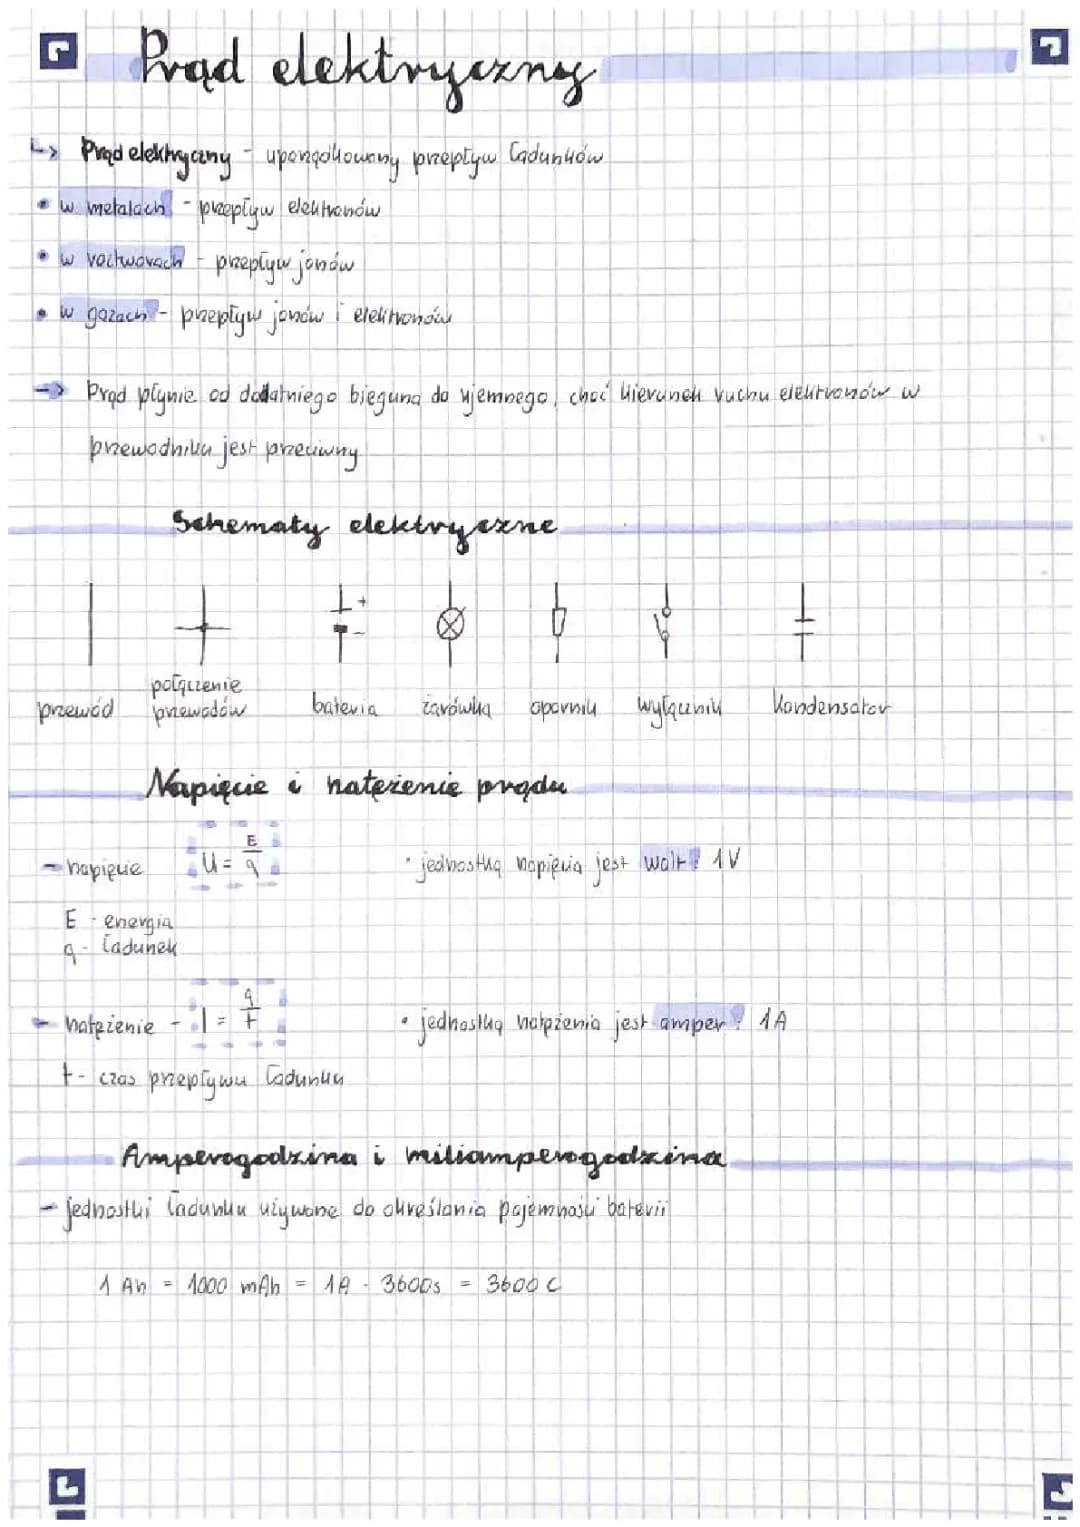 Prąd elektryczny
↳ Prąd elektryczny - uporządkowany przepływ ładunków
• w metalach - przepływ elektronów
• w roztworach - przepływ jonów
• w gazach - przepływ jonów i elektronów
→ Prąd płynie od dodatniego bieguna do ujemnego, choć kierunek ruchu elektronów w
przewodniku jest przeciwny
Schematy elektryczne
+
-
przewód połączenie przewodów bateria żarówka opornik wyłącznik kondensator
Napięcie i natężenie prądu
- napięcie U = E/q • jednostką napięcia jest wolt: 1V
E - energia
q - ładunek
- natężenie - I = q/t • jednostką natężenia jest amper: 1A
t - czas przepływu ładunku
Amperogodzina i miliamperogodzina
- jednostki ładunku używane do określania pojemności baterii
1 Ah = 1000 mAh = 1A · 3600s = 3600 C